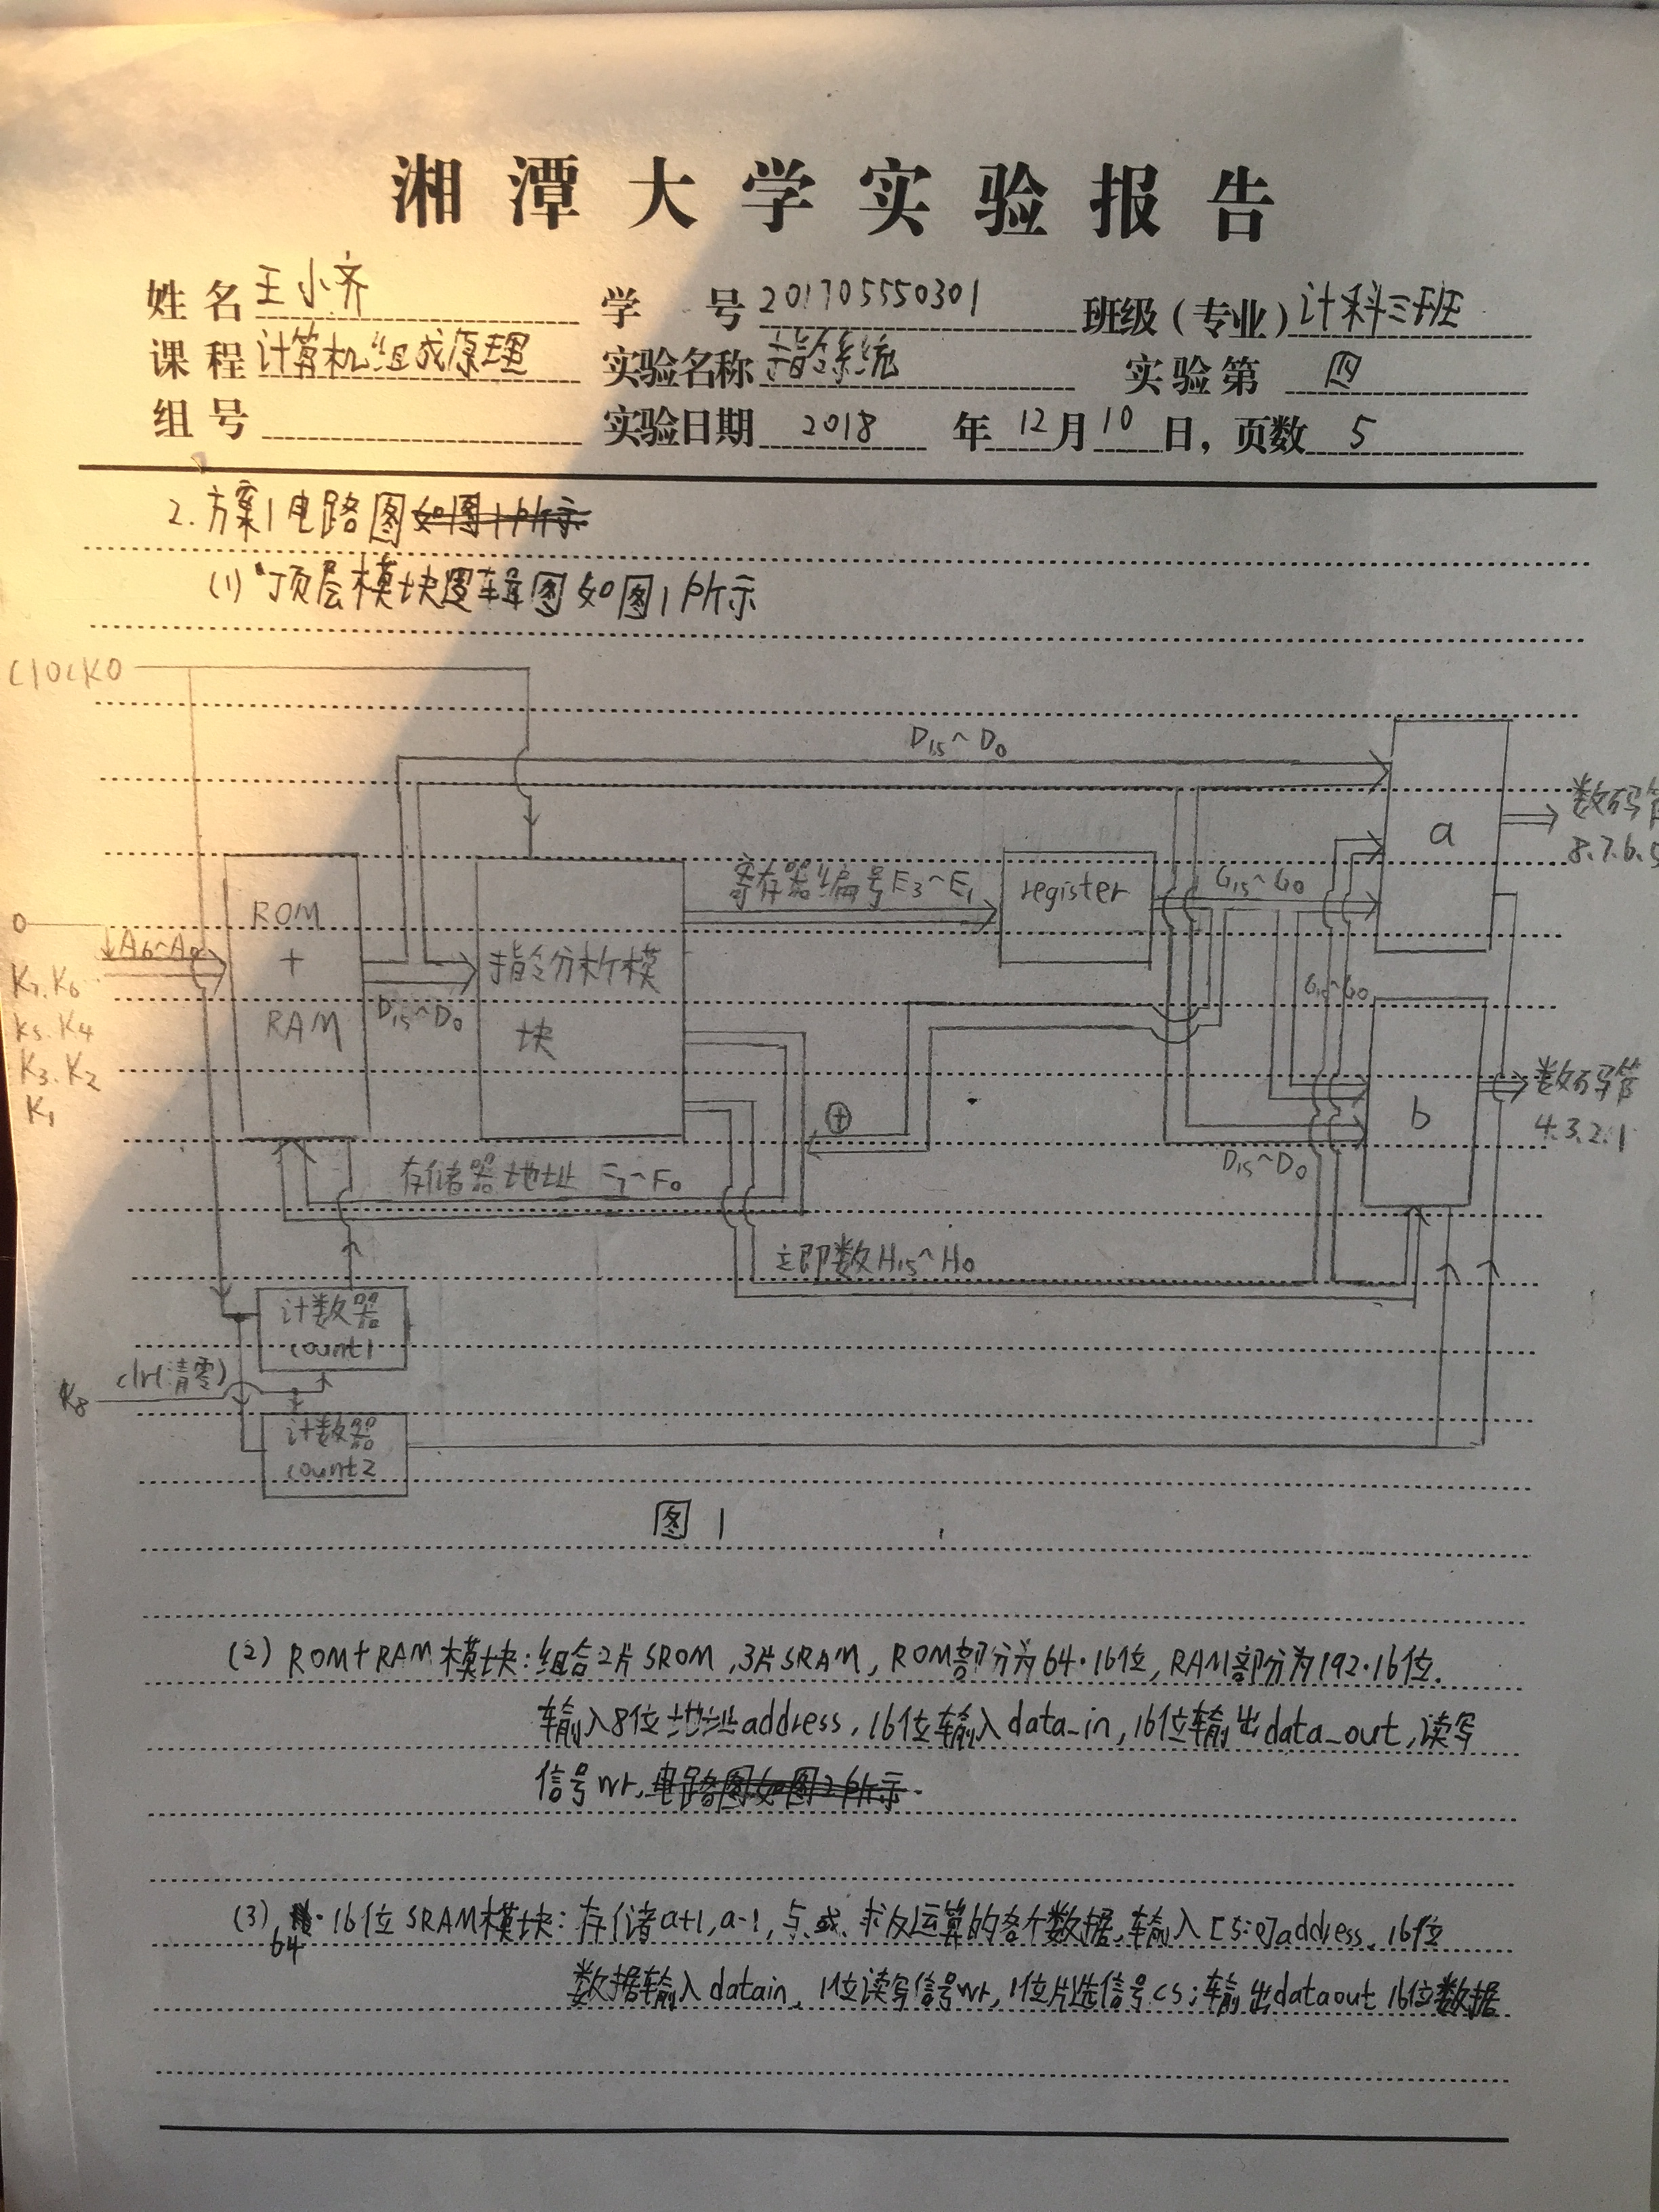 湘潭大学实验报告
姓名 王小齐 学号 201705550301 班级(专业) 计科三班
课程 计算机组成原理 实验名称 指令系统 实验第 四
组号 实验日期 2018 年 12 月 10 日, 页数 5
2. 方案1电路图如图1所示
(1) 顶层模块逻辑图如图1所示
clock0
D15~D0
数码管
8.7.6.5
a
寄存器编号E3~E1
register
G15~G0
0
A6~A0
K7.K6
K5.K4
K3.K2
K1
ROM
+
RAM
D15~D0
指令分析模
块
G15~G0
+
b
数码管
4.3.2.1
D15~D0
存储器地址 F7~F0
立即数H15~H0
计数器
count1
K8 clr(清零)
计数器
count2
图 1
(2) ROM+RAM模块: 组合2片SROM,3片SRAM, ROM部分为64·16位, RAM部分为192·16位.
输入8位地址address, 16位输入data_in, 16位输出data_out, 读写
信号wr, 电路图如图2所示.
(3) 64·16位SRAM模块: 存储a+1, a-1, 与.或.求反运算的各个数据,输入[5:0]address, 16位
数据输入datain, 1位读写信号wr, 1位片选信号cs; 输出dataout 16位数据